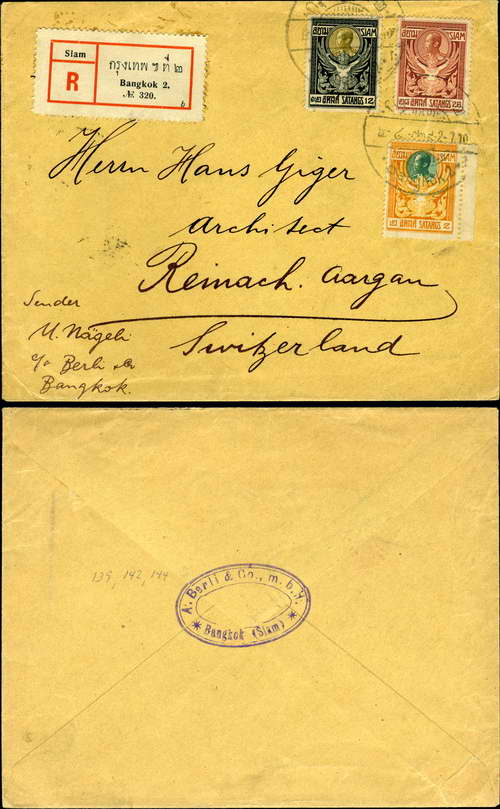 Siam
R
กรุงเทพฯ ที่ ๒
Bangkok 2.
№ 320.
b
สยาม SIAM
๑๒ สตางค์ SATANGS 12
สยาม SIAM
๒๘ สตางค์ SATANGS 28
2-7.10
สยาม SIAM
๒ สตางค์ SATANGS 2
Herrn Hans Giger
Architect
Reinach. Aargau
Switzerland
Sender
U. Nägeli
c/o Berli & Co
Bangkok.
139, 142, 144
A. Berli & Co., m. b. H.
* Bangkok (Siam) *